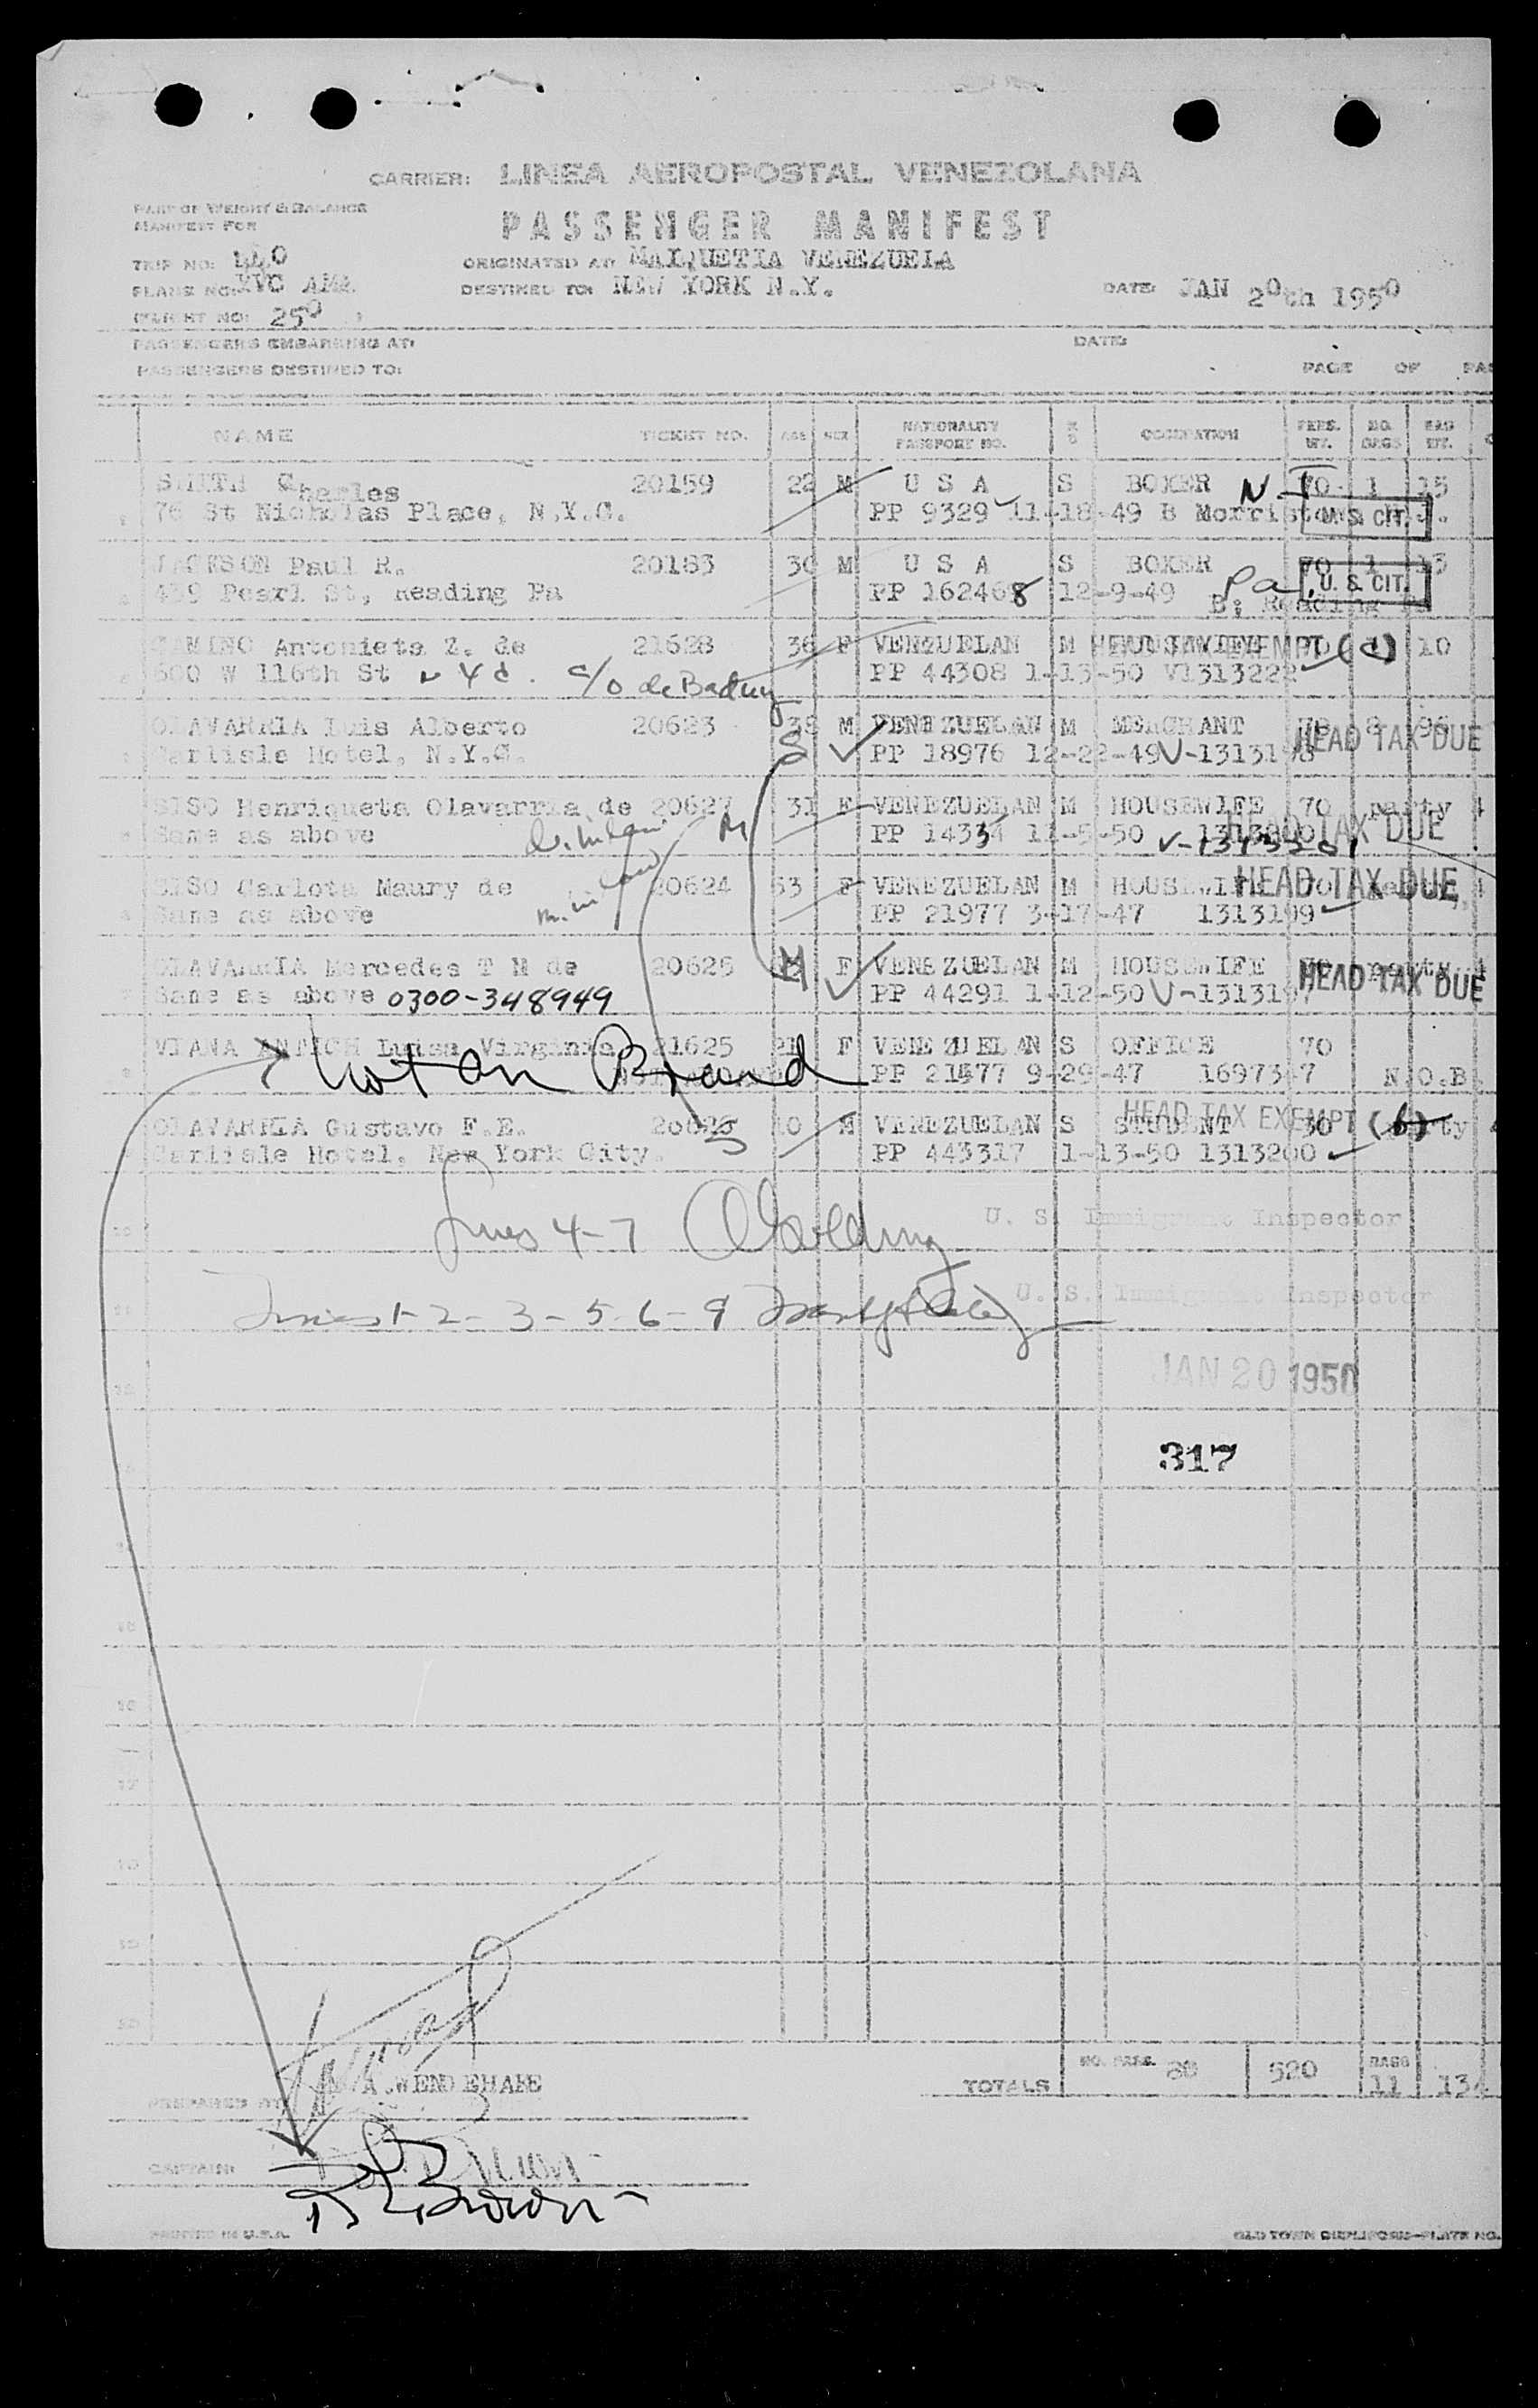 CARRIER: LINEA AEROPOSTAL VENEZOLANA
PART OF WEIGHT & BALANCE
MANIFEST FOR
PASSENGER MANIFEST
TRIP NO:
ORIGINATED AT: MAIQUETIA VENEZUELA
PLANE NO: YVC AMA
DESTINED TO: NEW YORK N.Y.
DATE: JAN 20th 1950
FLIGHT NO: 250
PASSENGERS EMBARKING AT:
DATE:
PASSENGERS DESTINED TO:
PAGE OF
NAME TICKET NO. AGE SEX NATIONALITY PASSPORT NO. OCCUPATION PERS. WT. NO. BAGS BAG WT.
SMITH Charles 20159 22 M U S A S BOXER N.J 70 1 15
76 St Nicholas Place, N.Y.C. PP 9329 11-18-49 B Morristown N.J.
U. S. CIT.
JACKSON Paul R. 20183 30 M U S A S BOXER 70 1 13
439 Pearl St, Reading Pa PP 162468 12-9-49 B; Reading Pa
Pa. U. S. CIT.
CAMINO Antonieta Z. de 21628 36 F VENEZUELAN M HOUSEWIFE 70 10
HEAD TAX EXEMPT
600 W 116th St N Y C. c/o de PP 44308 1-13-50 V1313222
OLAVARRIA Luis Alberto 20623 38 M VENEZUELAN M MERCHANT 70 8 96
HEAD TAX DUE
Carlisle Hotel, N.Y.C. S PP 18976 12-22-49 V-1313198
SISO Henriqueta Olavarria de 20627 31 F VENEZUELAN M HOUSEWIFE 70 party 4
HEAD TAX DUE
Same as above M PP 14334
SISO Carlota Maury de 20624 53 F VENEZUELAN M HOUSEWIFE 70 party 4
HEAD TAX DUE
Same as above PP 21977 3-17-47 1313199
OLAVARRIA Mercedes T M de 20625 F VENEZUELAN M HOUSEWIFE 70 party 4
HEAD TAX DUE
Same as above 0300-348949 PP 44291 1-12-50 V-1313197
VIANA ANTICH Luisa Virginia 21625 21 F VENEZUELAN S OFFICE 70
Not on Board PP 21577 9-29-47 16973-7 N.O.B.
HEAD TAX EXEMPT
OLAVARRIA Gustavo F.E. 20626 10 M VENEZUELAN S STUDENT 30 (b) party 4
Carlisle Hotel, New York City. PP 443317 1-13-50 1313200
Lines 4-7
U. S. Immigrant Inspector
Lines 1-2-3-5-6-9
U. S. Immigrant Inspector
JAN 20 1950
317
TOTALS NO. PASS. 520 BAGS 11
PREPARED BY: A. WENDEHAKE
CAPTAIN:
R L Brown
PRINTED IN U.S.A.
OLD TOWN DUPLIFORM—PLATE NO.